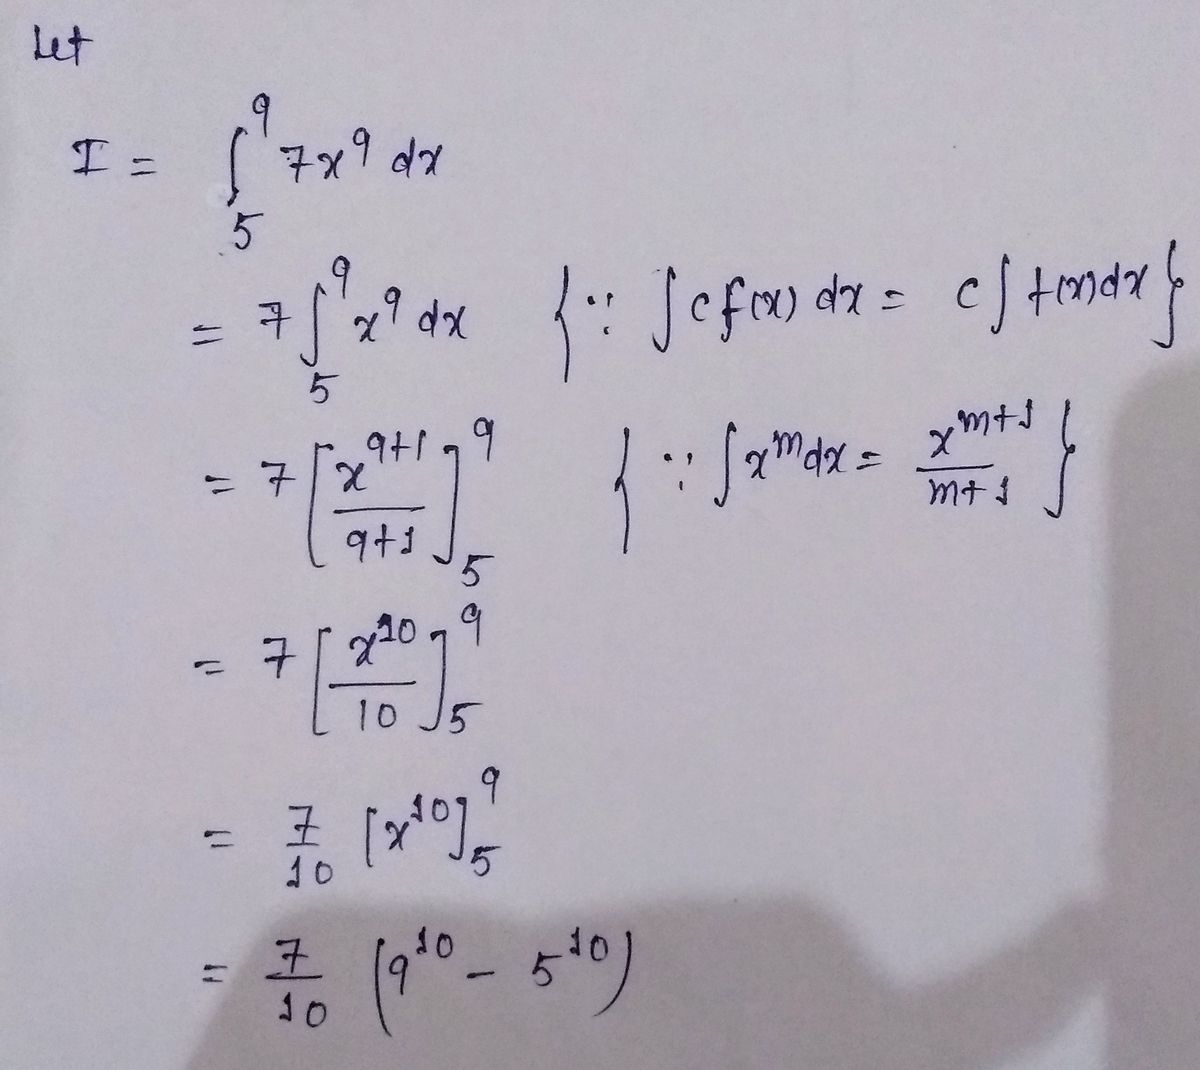 Let
I = ∫₅⁹ 7x⁹ dx
= 7∫₅⁹ x⁹ dx { ∵ ∫ c f(x) dx = c∫ f(x)dx }
= 7 [x⁹⁺¹/9+1]₅⁹ { ∵ ∫x^m dx = x^(m+1)/m+1 }
= 7 [x¹⁰/10]₅⁹
= 7/10 [x¹⁰]₅⁹
= 7/10 (9¹⁰ - 5¹⁰)